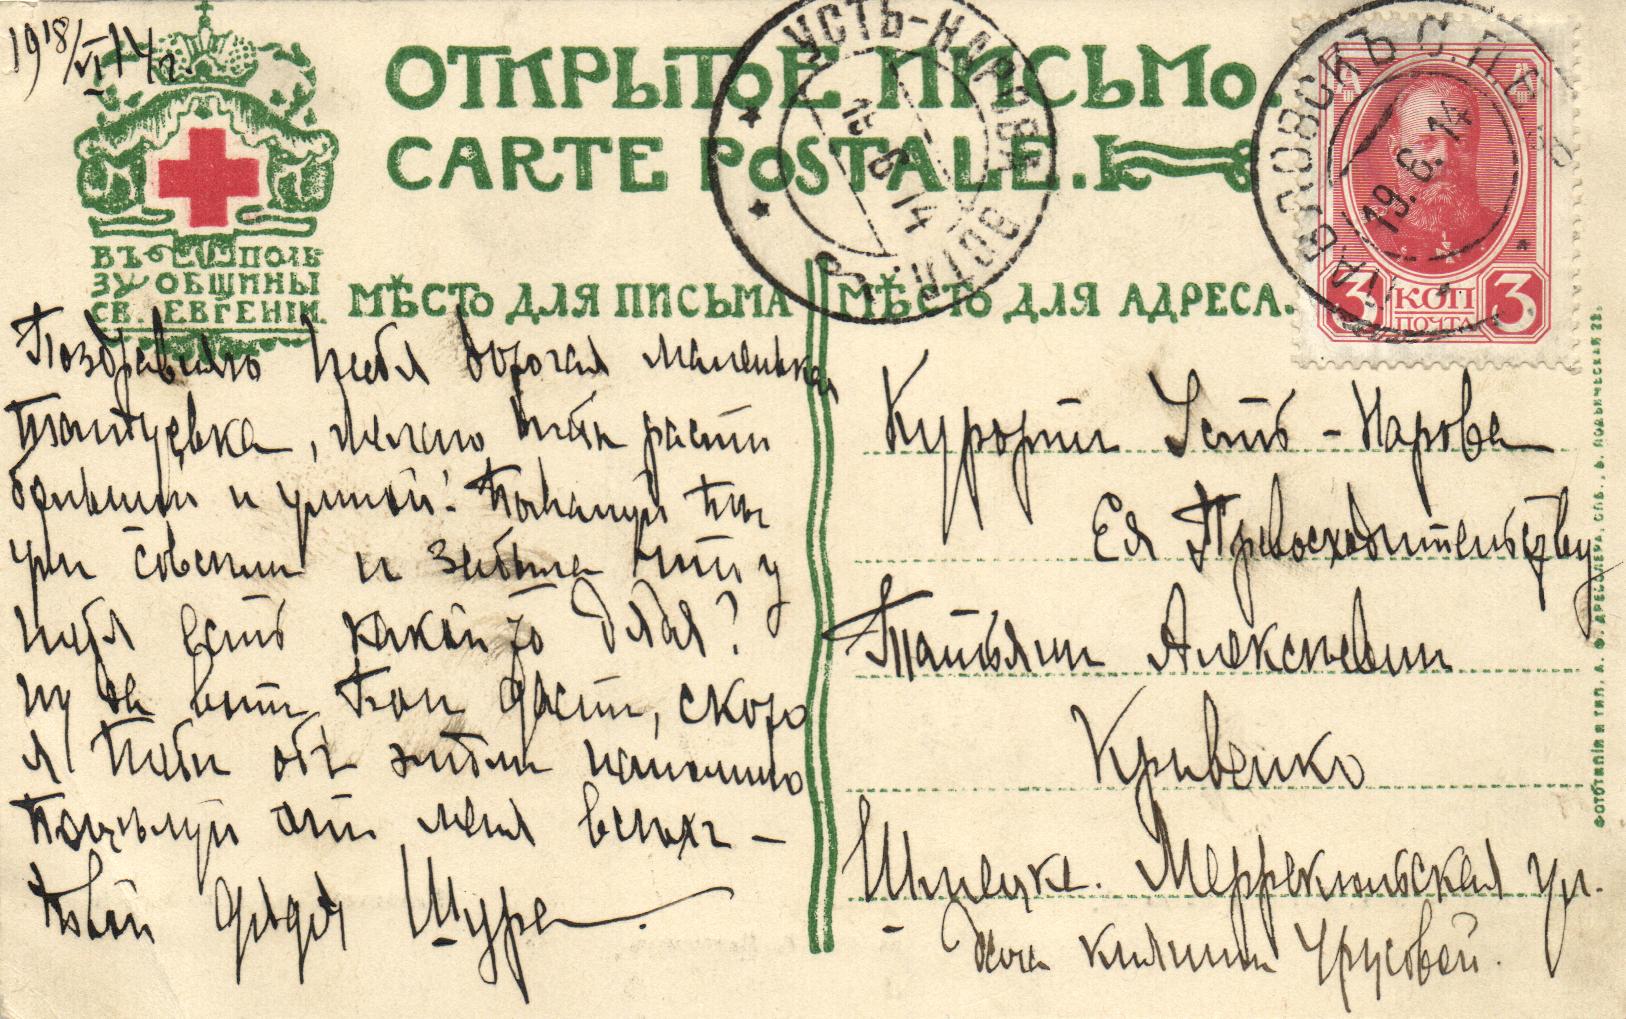 1918/VI 14 г.
ОТКРЫТОЕ ПИСЬМО.
CARTE POSTALE.
ВЪ ПОЛЬ
ЗУ ОБЩИНЫ
СВ. ЕВГЕНІИ.
МѢСТО ДЛЯ ПИСЬМА
МѢСТО ДЛЯ АДРЕСА.
УСТЬ-НАРОВА
ЭСТЛ.
6 14
ПАВЛОВСКЪ С.П.Б.
19.6.14
3 КОП 3
ПОЧТА
Поздравляю тебя дорогая маленькая
, желаю тебѣ расти
большой и умной! Пожалуй ты
уже совсѣмъ и забыла что у
тебя есть какой то дядя?
Ну да вотъ Богъ дастъ, скоро
я тебѣ объ этомъ напомню
Поцѣлуй отъ меня всѣхъ –
твой дядя Шура.
Курортъ Усть-Нарова
Ея Превосходительству
Татьянѣ Алексѣевнѣ
Кривенко
Шмецке. Меррекюльская ул.
дача княгини Урусовой.
ФОТОТИПІЯ И ТИП. А. Ф. ДРЕССЛЕРА СПБ., Б. ПОДЬЯЧЕСКАЯ 22.